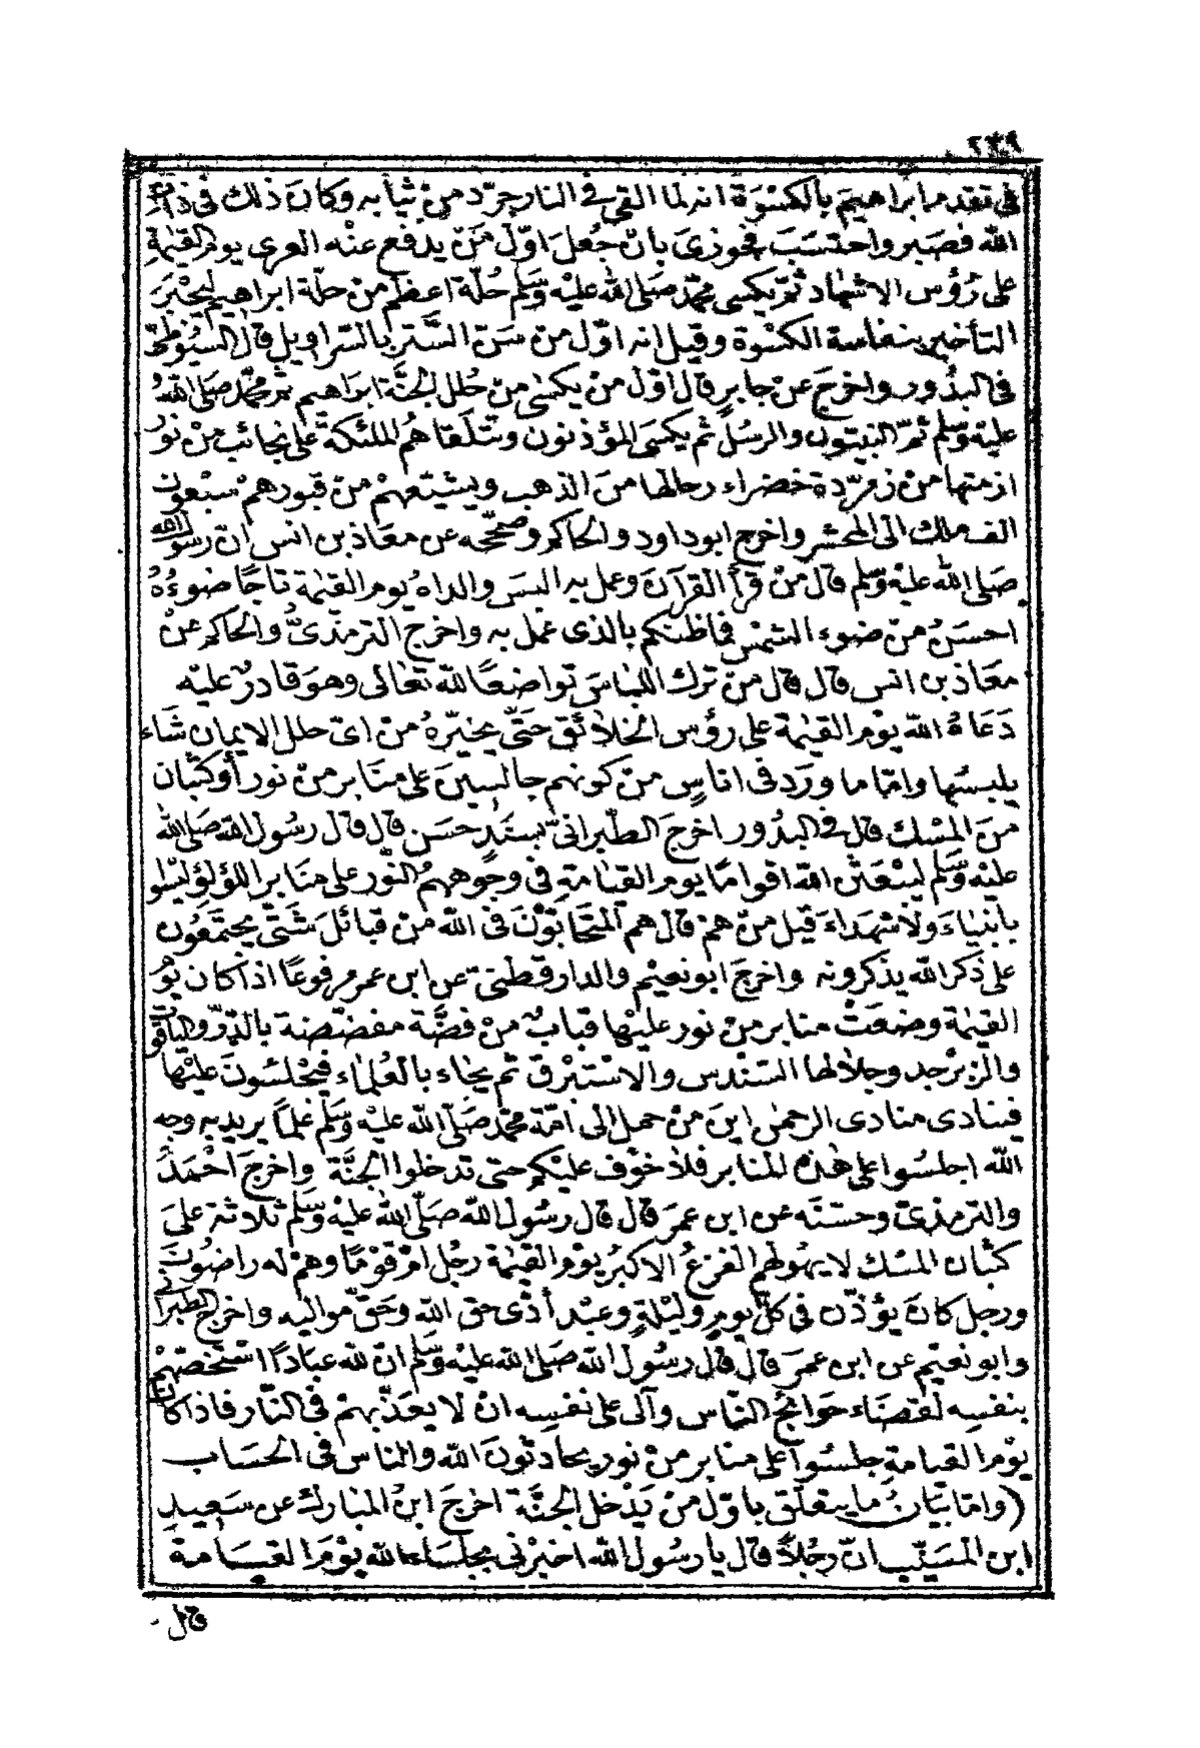 ٢٣٩
في تقدم ابراهيم بالكسوة انه لما القي في النار جرد من ثيابه وكان ذلك في ذات
الله فصبر واحتسب فجوزى بان جُعل اوّل مَن يدفع عنه العرى يوم القيمة
على رؤس الاشهاد ثم يكسى محمد صلى الله عليه وسلم حُلّة اعظم من حلّة ابراهيم ليجبر
التأخير بنفاسة الكسوة وقيل انه اوّل من سنّ السّتر بالسّراويل قال السيوطى
فى البدور واخرج عن جابر قال اوّل من يكسى من حُلل الجنّة ابراهيم ثم محمد صلى الله
عليه وسلم ثمّ النبيّون والرسُل ثم يكسى المؤذنون وتتلقاهُم الملئكة على نجائب من نور
ازمتها من زمرّدة خضراء رحالها من الذهب ويشيّعهم من قبورهم سبعون
الف ملك الى المحشر واخرج ابو داود والحاكم وصححّه عن معاذ بن انس انّ رسول الله
صلى الله عليه وسلم قال من قرأ القرآن وعمل به البس والداهُ يوم القيمة تاجًا ضوءُهُ
احسنُ من ضوء الشمس فما ظنكم بالذى عمل به واخرج الترمذىُّ والحاكم عن
معَاذ بن انس قال قال من ترك اللباسَ تواضعًا لله تعالى وهوَ قادرٌ عليه
دَعَاهُ الله يوم القيمة على رؤس الخلائق حَتّى يخيّرهُ من اىّ حلل الايمان شَاء
يلبسُها وامّا ما ورَد فى اناسٍ من كونهم جالسينَ على منَابر من نور أو كثبان
منَ المسْك قال فى البدُور اخرجَ الطّبرانىّ بسنَدٍ حسَن قال قال رسُول الله صَلى الله
عليه وسَلم ليبْعَثنّ الله اقوامًا يوم القيامةِ فى وجُوههمُ النّور على منَابر اللؤلؤ ليسُوا
بانبيَاءَ ولا شهدَاءَ قيل من هم قال هم المتحَابّونَ فى الله من قبائلَ شَتّى يجتمعُون
على ذكر الله يذكرونه واخرجَ ابو نعيم والدارقطنىّ عن ابن عمر مرفوعًا اذا كان يوُ
القيمة وضعَتْ منابر من نور عليْها قبابٌ من فضّة مفضّضة بالدّرّ والياقو
والزبرْجد وجلالها السّندس والاستبرق ثم يجاء بالعُلماء فيجْلسُونَ عليْها
فينادى منادى الرحمن اينَ منْ حمل الى امّة محمّد صَلّى الله عليْه وسَلم علماً يريد به وجه
الله اجلسُوا على هذه المنابر فلا خوْف عليْكم حتى تدخلوا الجنّة واخرجَ احْمدُ
والترمذىّ وحسّنَه عن ابن عمرَ قال قال رسُول الله صَلّى الله عليْه وسَلم ثلاثة على
كثْبان المسْك لا يهُولهم الفزعُ الاكبرُ يوْم القيمة رجُل امّ قوْمًا وهم له راضُونَ
ورجل كانَ يؤذّن فى كلّ يومٍ وليْلةٍ وعبْد أدّى حق الله وحَقّ مواليه واخرج الطبرانى
وابو نعيْم عن ابن عمرَ قال قال رسُول الله صَلى الله عليْه وسَلم انّ لله عبَادًا استخصّهمْ
بنفسِه لقضَاء حَوائج النّاس وآلى على نفسِه انْ لا يعَذّبهمْ فى النّار فاذا كان
يوْم القيامةِ جلسُوا على منابر من نور يحادثونَ الله والناس فى الحسَاب
(وامّا بيَان ما يتعلّق باوّل من يَدْخل الجنّة اخرجَ ابنُ المبارك عن سَعيدِ
ابن المسَيّب انّ رجُلاً قال يا رسُول الله اخبرْنى بجلسَاء الله يوْمَ القيامة
قال -